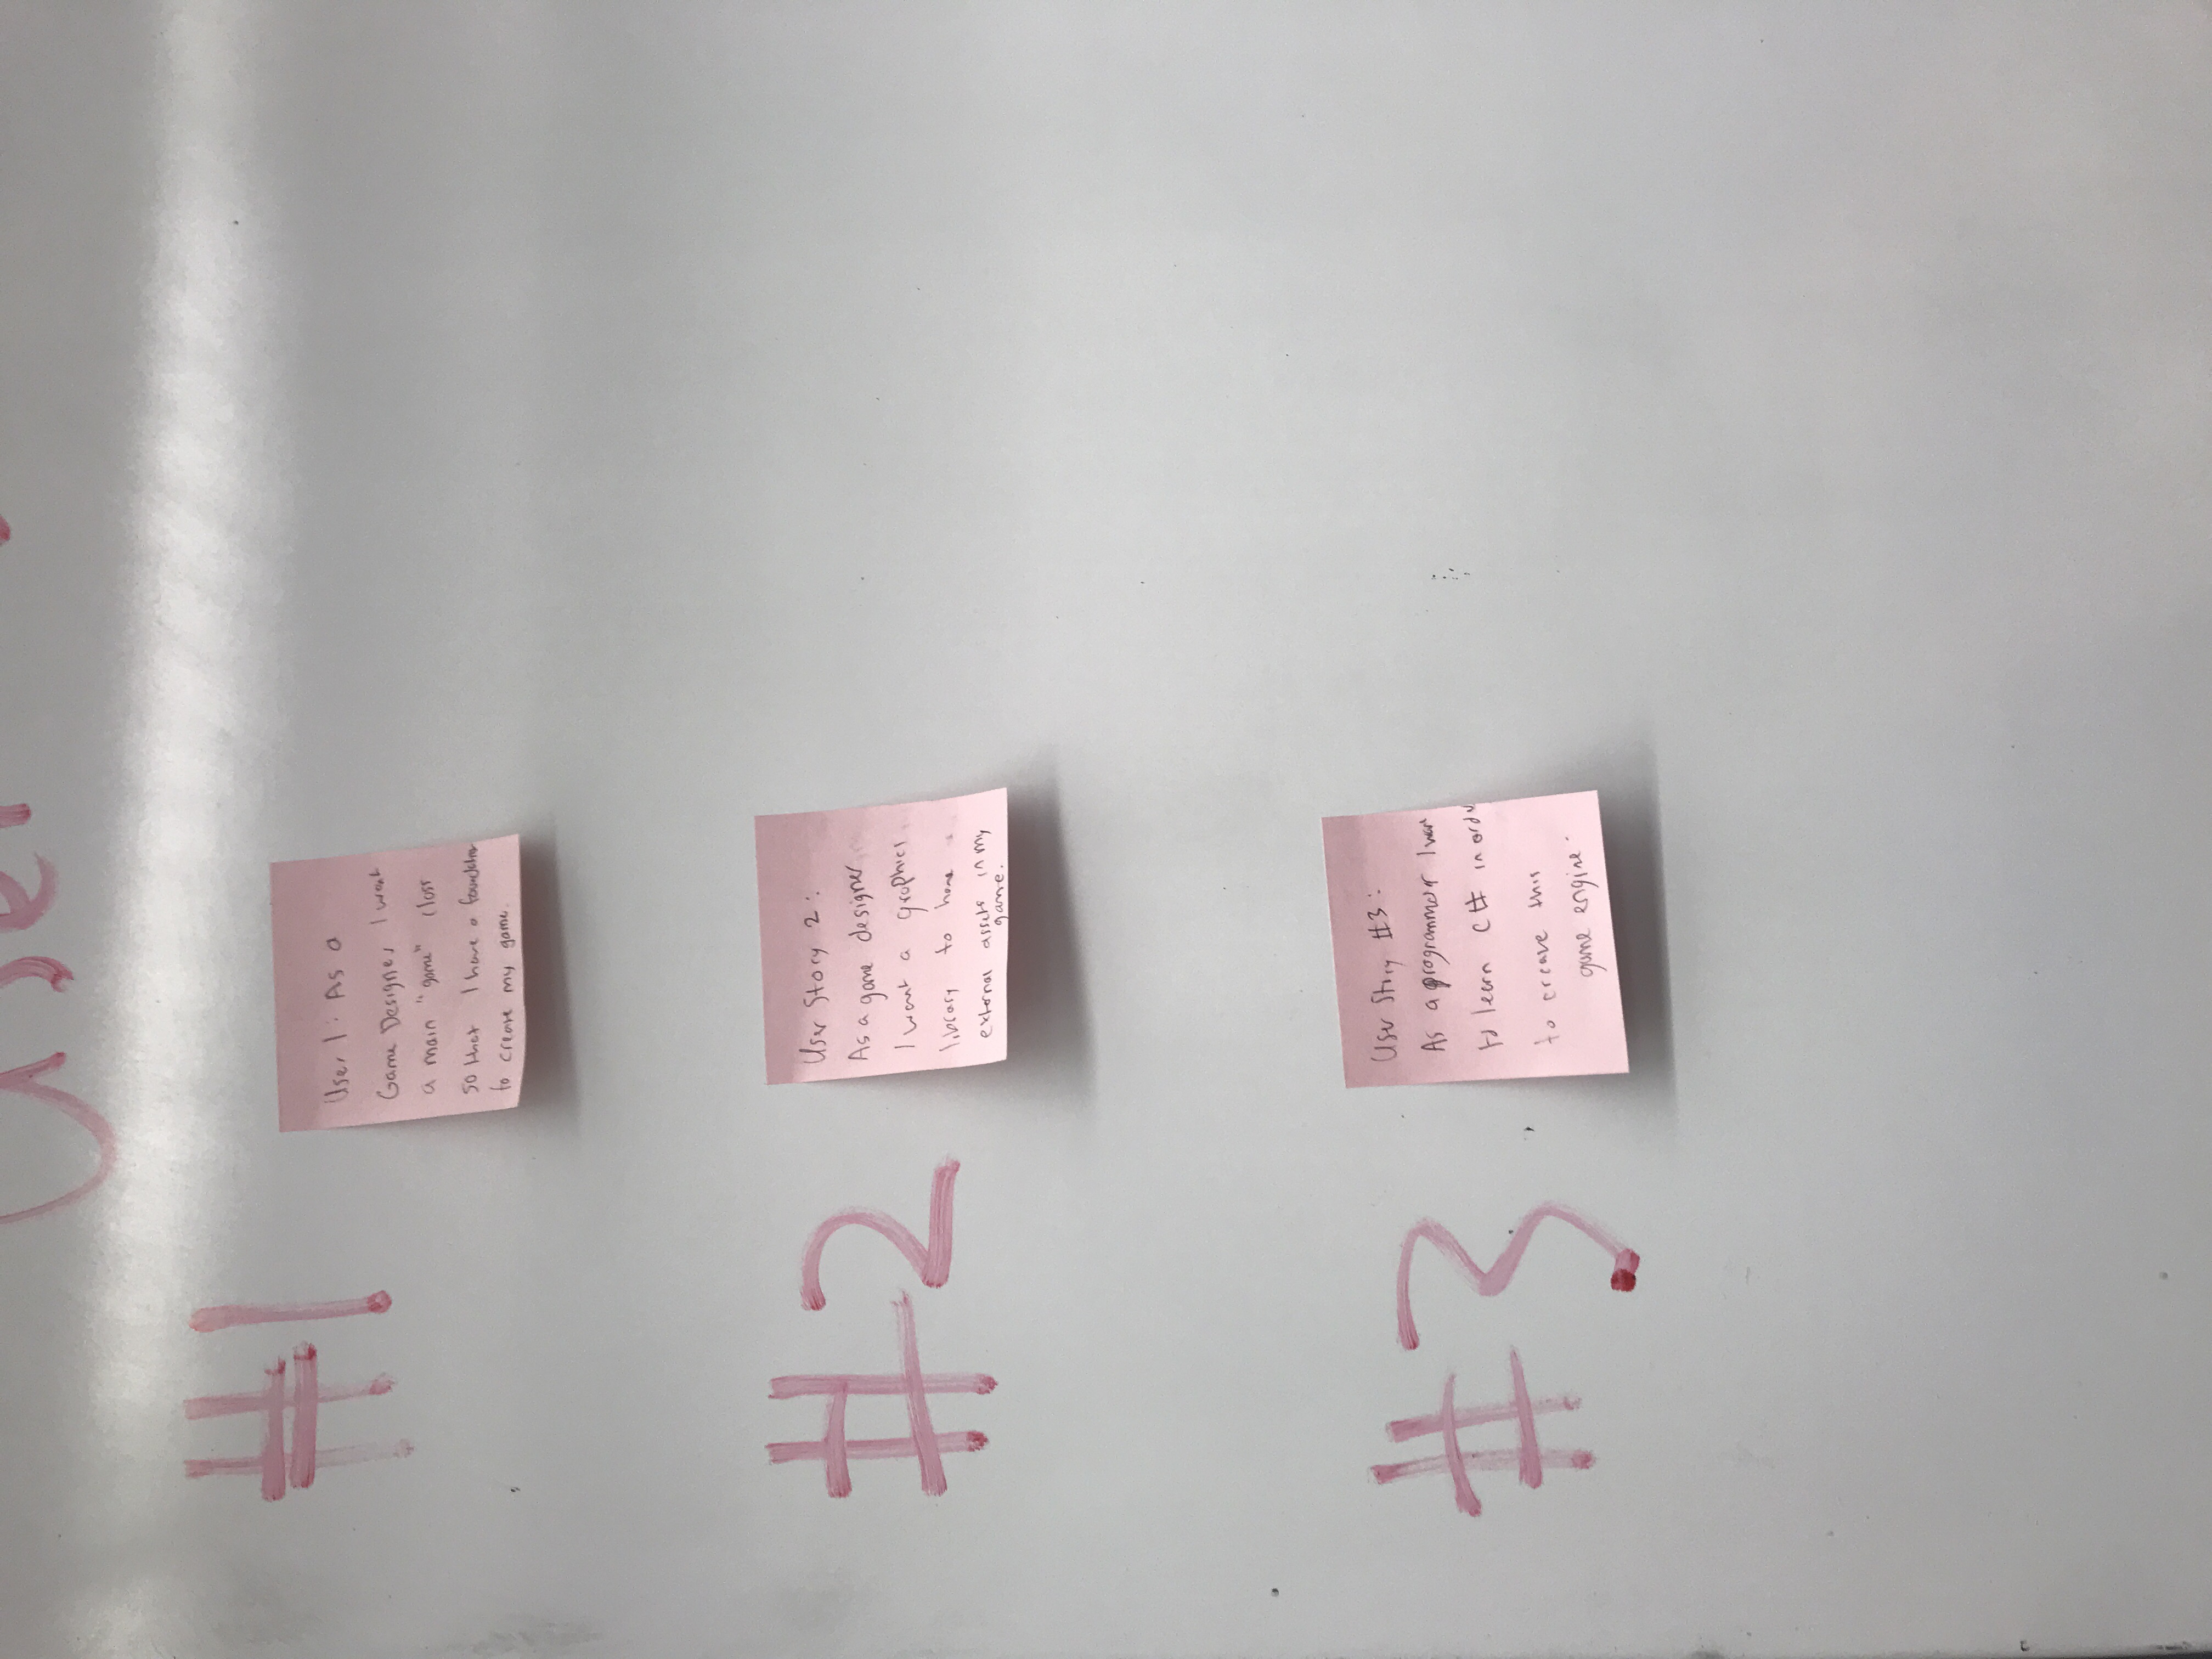 User
#1
User 1: As a
Game Designer I want
a main "game" class
so that I have a foundation
to create my game.
#2
User Story 2:
As a game designer
I want a graphics
library to have
external assets in my
game.
#3
User Story #3:
As a programmer I want
to learn C# in order
to create this
game engine.